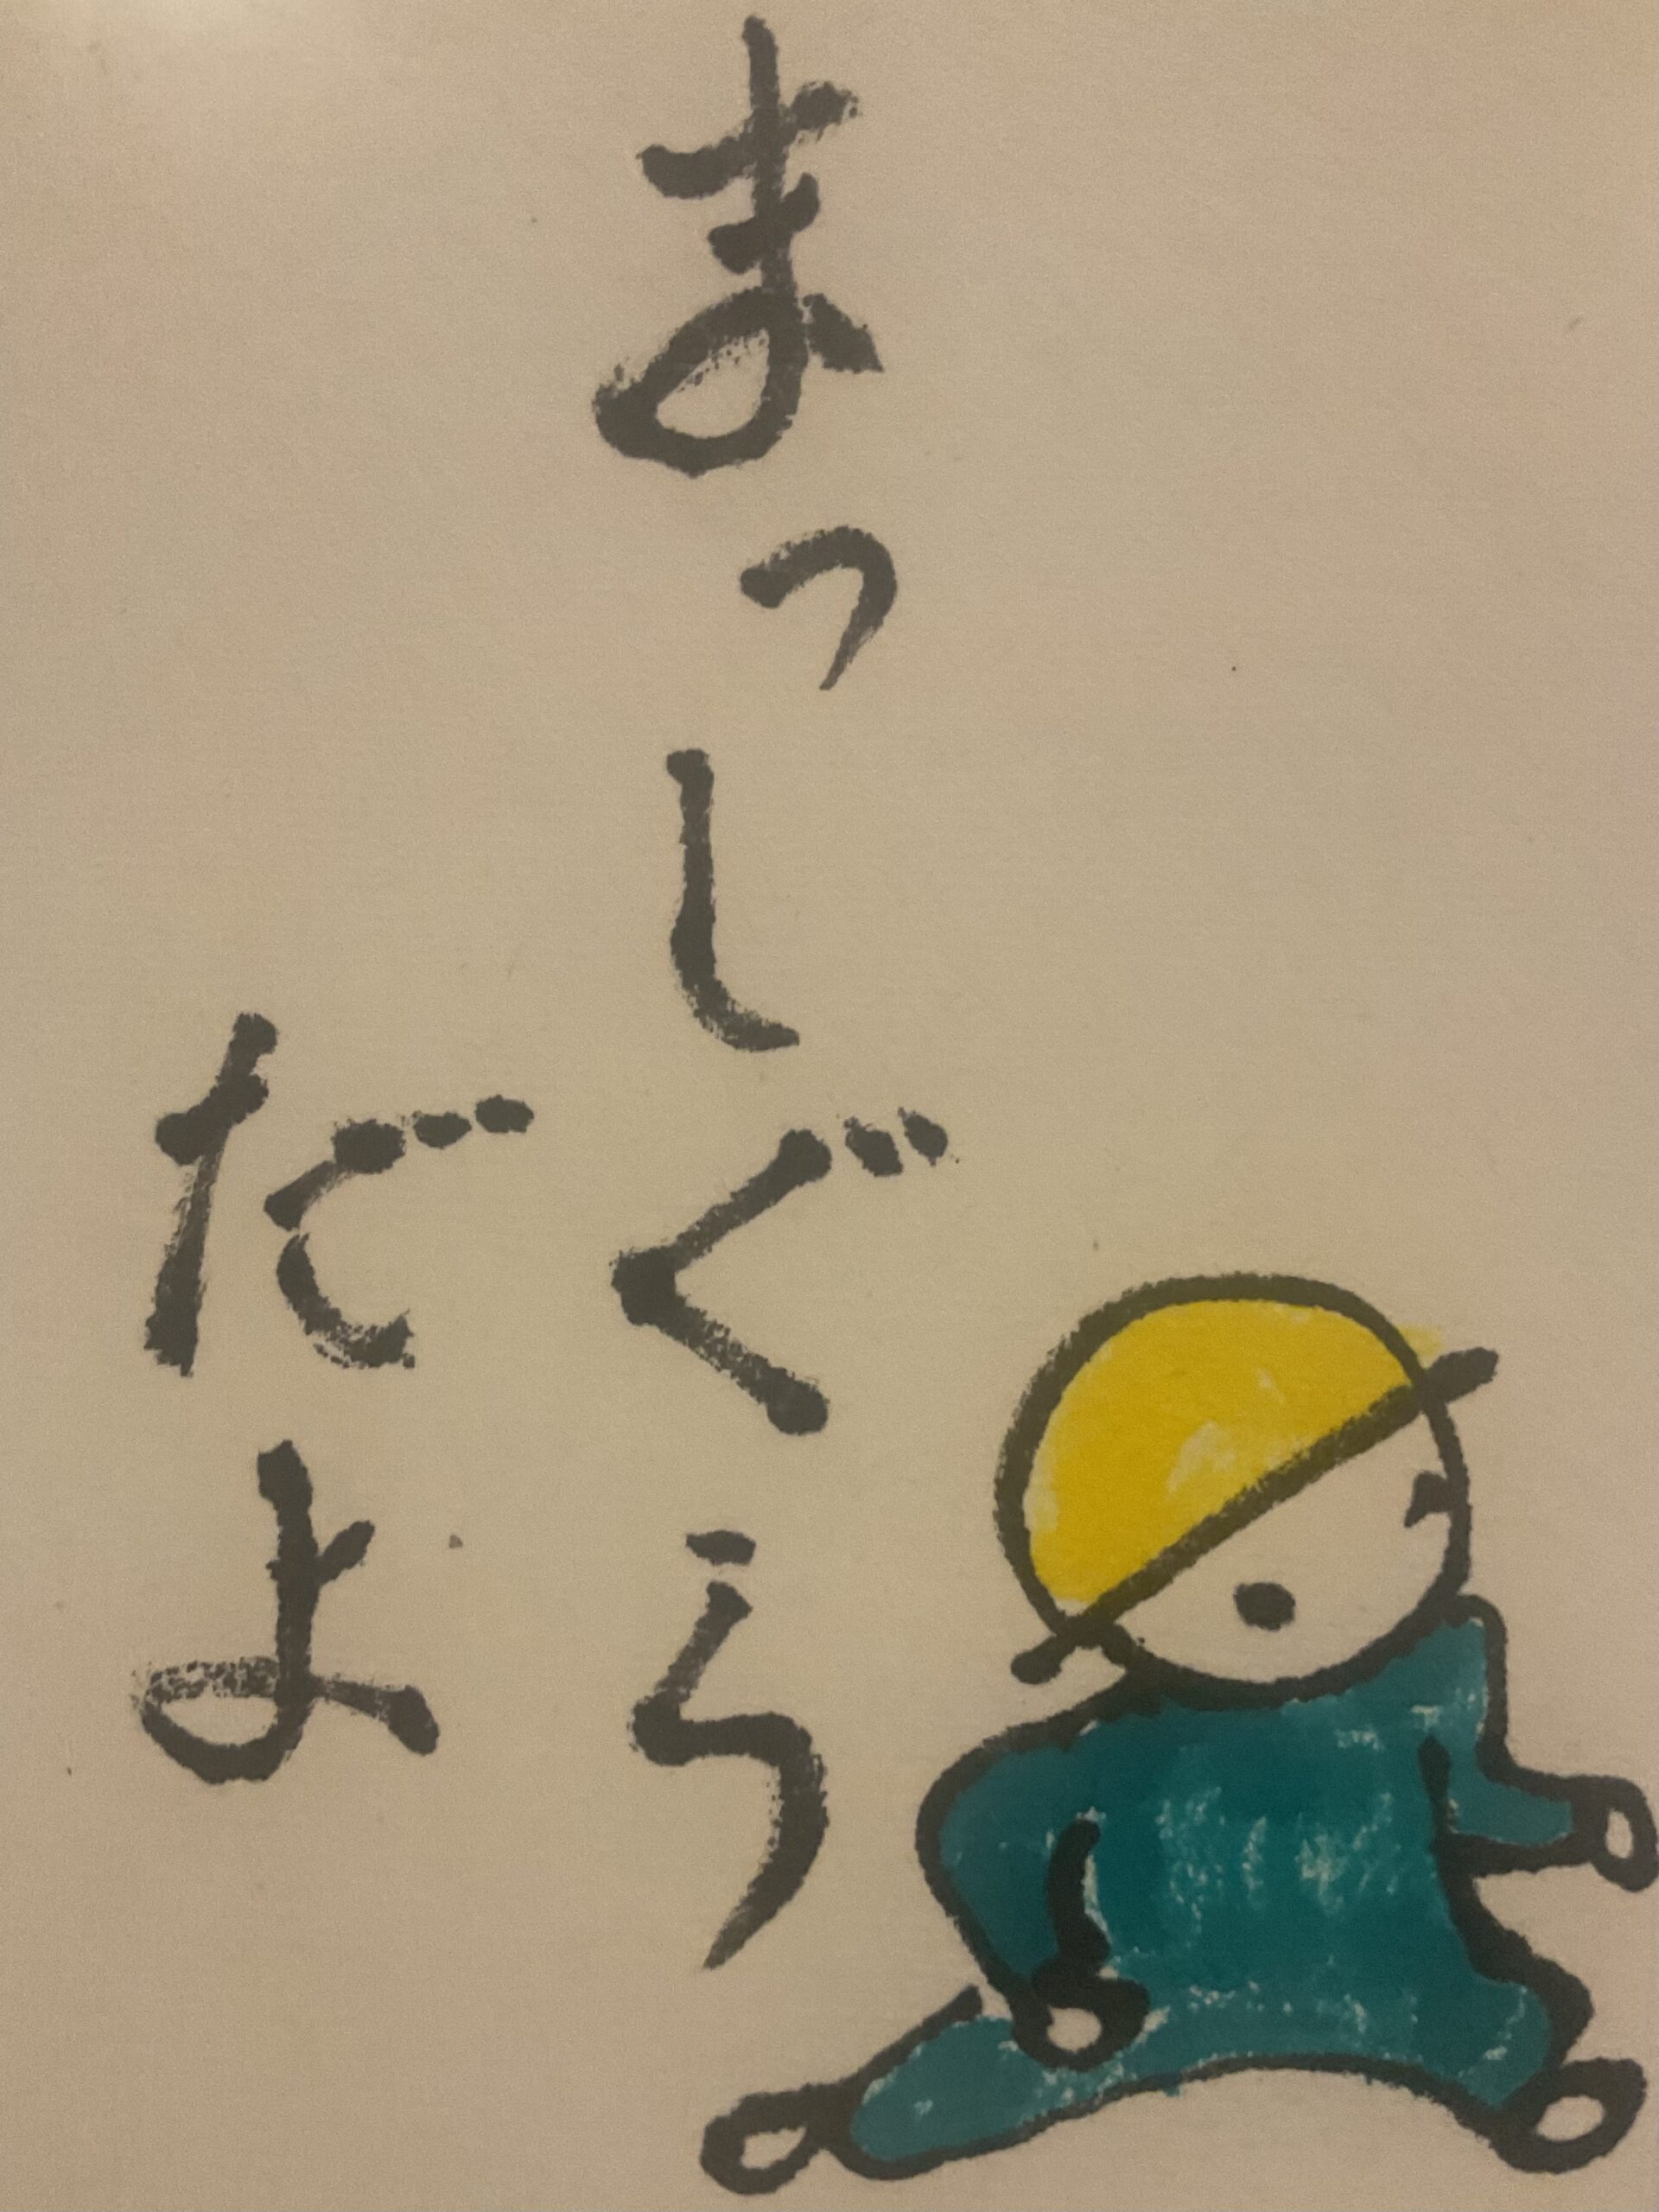 まっしぐら
だよ